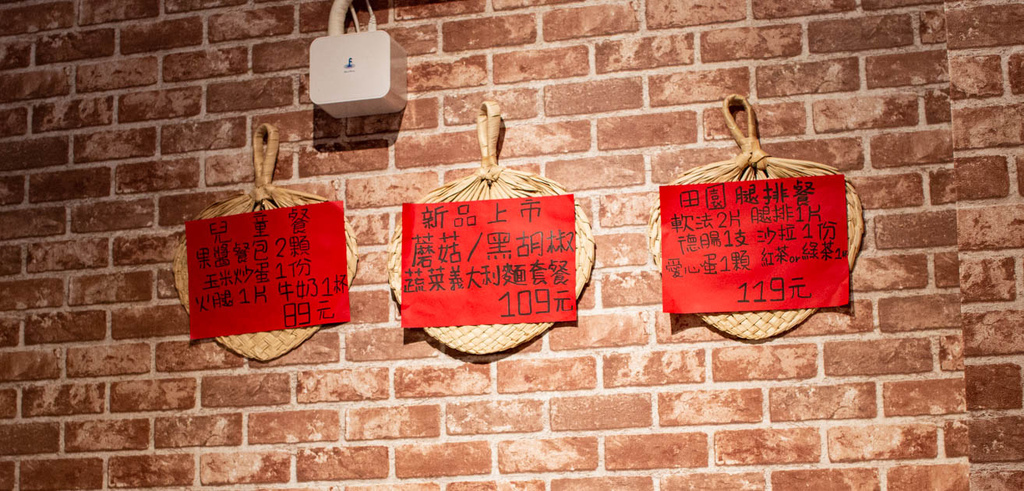 兒童餐
果醬餐包2顆
玉米炒蛋1份
火腿1片 牛奶1杯
89元
新品上市
蘑菇/黑胡椒
蔬菜義大利麵套餐
109元
田園腿排餐
軟法2片 腿排1片
德腸1支 沙拉1份
愛心蛋1顆 紅茶or綠茶1杯
119元